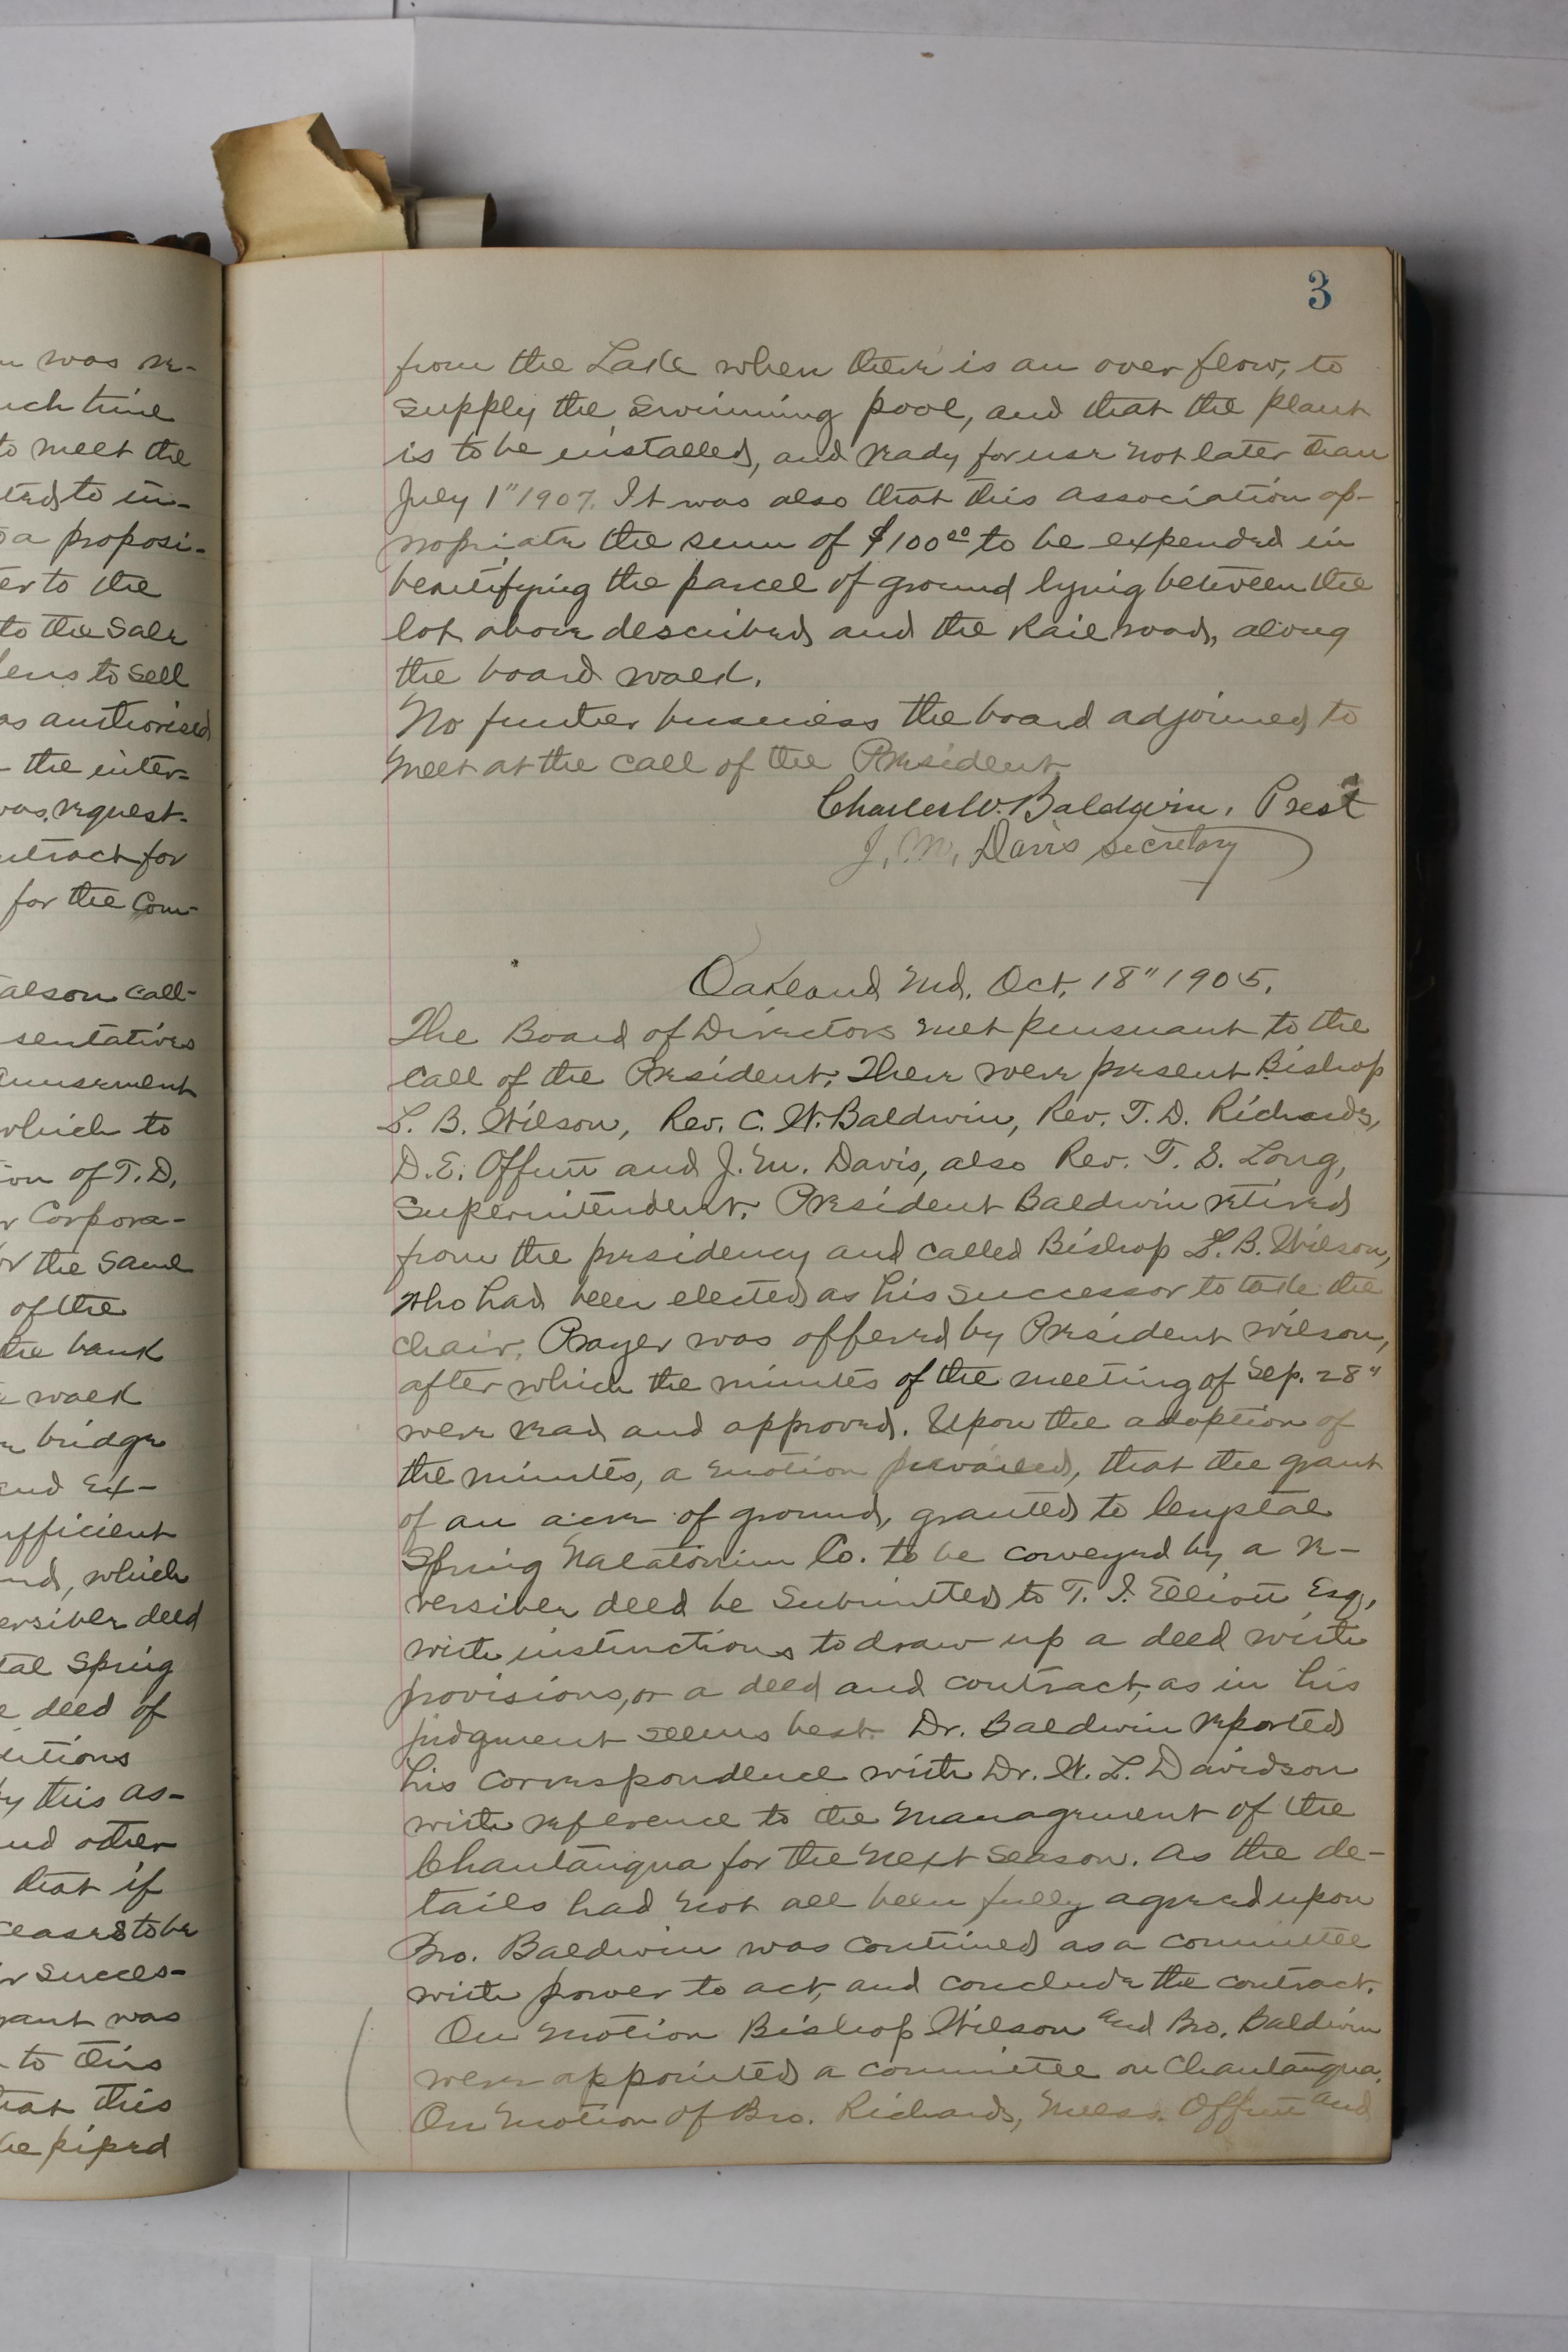 n was re-
uch time
to meet the
ted to in-
a proposi-
er to the
to the Sale
lens to sell
as authorised
the inter-
was request-
ntract for
for the Com-
alson call-
sentatives
amusement
which to
ion of T.D.
r Corpora-
or the same
of the
the bank
walk
bridge
and Ex-
ufficient
nd, which
ersiber deed
tal Spring
deed of
ditions
y this as-
nd other
that if
ceases to be
r succes-
rant was
to this
hat this
be piped
3
from the Lake when their is an over flow, to
supply the Swimming pool, and that the plant
is to be installed, and ready for use not later than
July 1" 1907. It was also that this association ap-
propriate the sum of $100 00 to be expended in
beautifying the parcel of ground lying between the
lot above described and the Rail road, along
the board walk.
No further business the board adjoined to
meet at the call of the President
Charles W. Baldwin, Prest
J. M. Davis secretary
Oakland Md. Oct. 18" 1905.
The Board of Directors met pursuant to the
call of the President. Their were present Bishop
L. B. Wilson, Rev. C. W. Baldwin, Rev. T. D. Richards,
D. E. Offutt and J. M. Davis, also Rev. T. S. Long,
Superintendent. President Baldwin retired
from the presidency and called Bishop L. B. Wilson,
who had been elected as his successor to take the
chair. Prayer was offered by President Wilson,
after which the minutes of the meeting of Sep. 28"
were read and approved. Upon the adoption of
the minutes, a motion prevailed, that the grant
of an acre of ground, granted to Cryptal
Spring Nalatorium Co. to be conveyed by a re-
versiber deed be Submitted to T. J. Elliott Esq,
with instructions to draw up a deed with
provisions, or a deed and contract, as in his
judgment seems best. Dr. Baldwin reported
his correspondence with Dr. W. L. Davidson
with reference to the management of the
Chautauqua for the next season. As the de-
tails had not all been fully agreed upon
Bro. Baldwin was contined as a committee
with power to act, and conclude the contract.
On motion Bishop Wilson and Bro. Baldwin
were appointed a committee on Chautauqua.
On motion of Bro. Richards, Mess. Offutt and